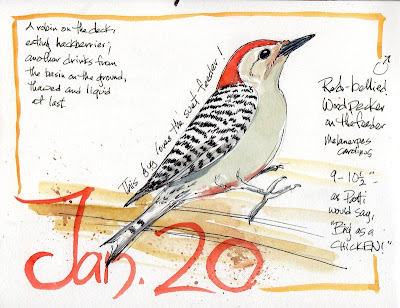 A robin on the deck,
eating hackberries;
another drinks from
the basin on the ground,
thawed and liquid
at last
This guy loves the suet feeder!
♂
Red-bellied
Woodpecker
on the feeder
Melanerpes
carolinus
9-10½"-
as Patti
would say,
"Big as a
CHICKEN!"
Jan. 20